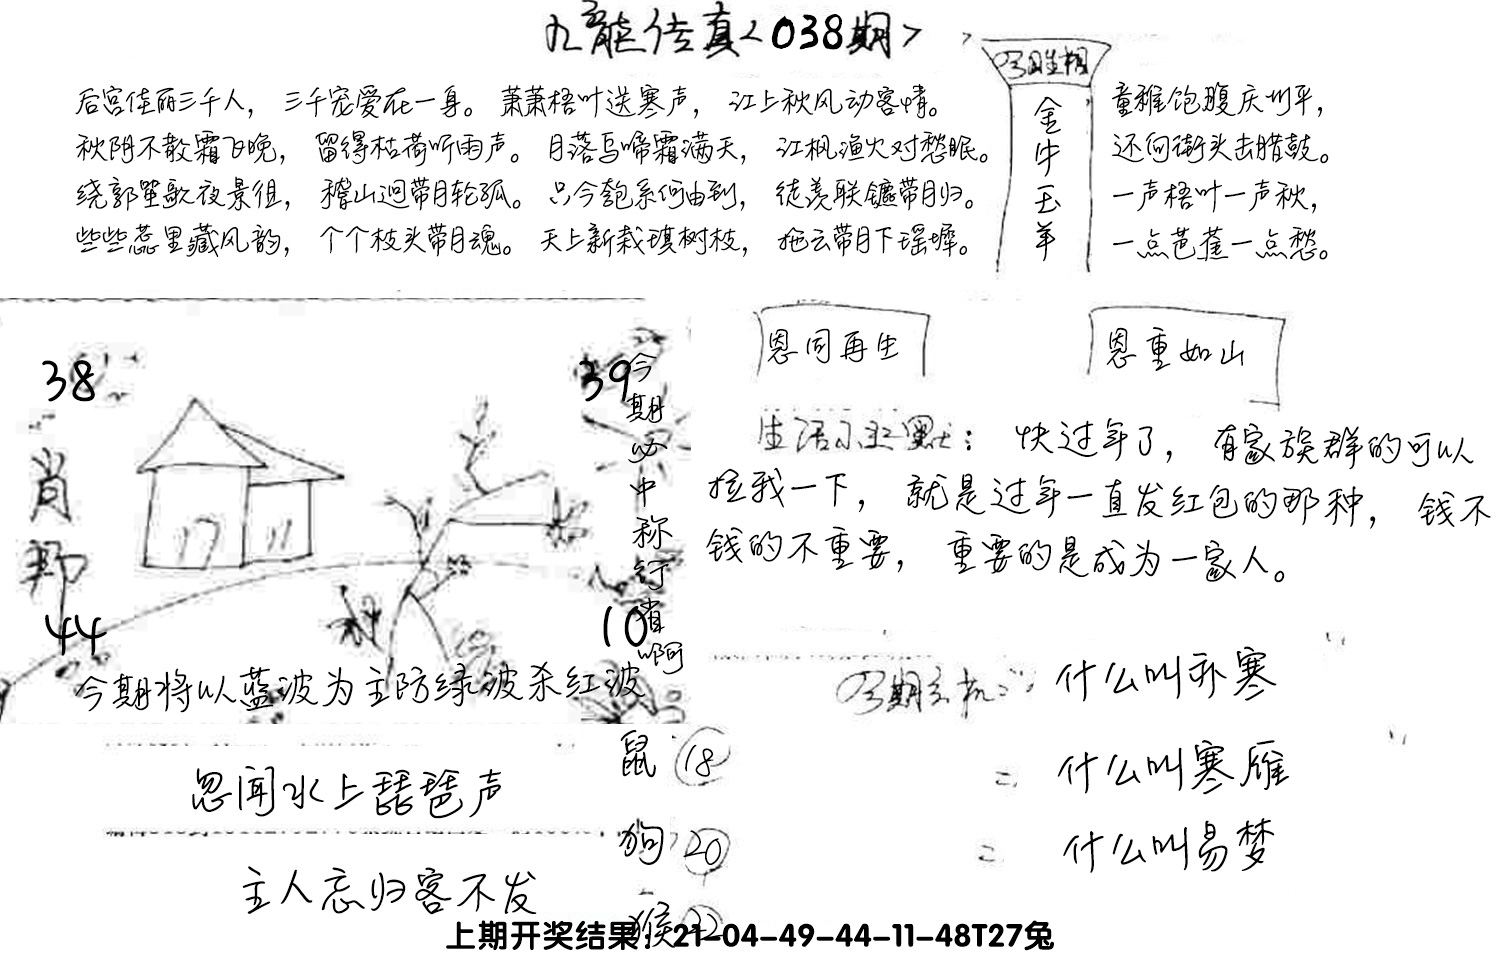 九龙传真<038期>
后宫佳丽三千人，三千宠爱在一身。萧萧梧叶送寒声，江上秋风动客情。
秋阴不散霜飞晚，留得枯荷听雨声。月落乌啼霜满天，江枫渔火对愁眠。
绕郭笙歌夜景徂，稽山迥带月轮孤。只今匏系何由到，徒羡联镳带月归。
些些蕊里藏风韵，个个枝头带月魂。天上新栽琪树枝，拖云带月下瑶墀。
金牛玉羊
童稚饱腹庆州平，
还向街头击腊鼓。
一声梧叶一声秋，
一点芭蕉一点愁。
38
39
肖
44
10
今期必中称行肖啊
今期将以蓝波为主防绿波杀红波
恩同再生
恩重如山
生活小幽默：快过年了，有家族群的可以
拉我一下，就是过年一直发红包的那种，钱不
钱的不重要，重要的是成为一家人。
什么叫孙寒
什么叫寒雁
什么叫易梦
忽闻水上琵琶声
主人忘归客不发
鼠 18
狗 20
猴 22
上期开奖结果：21-04-49-44-11-48T27兔